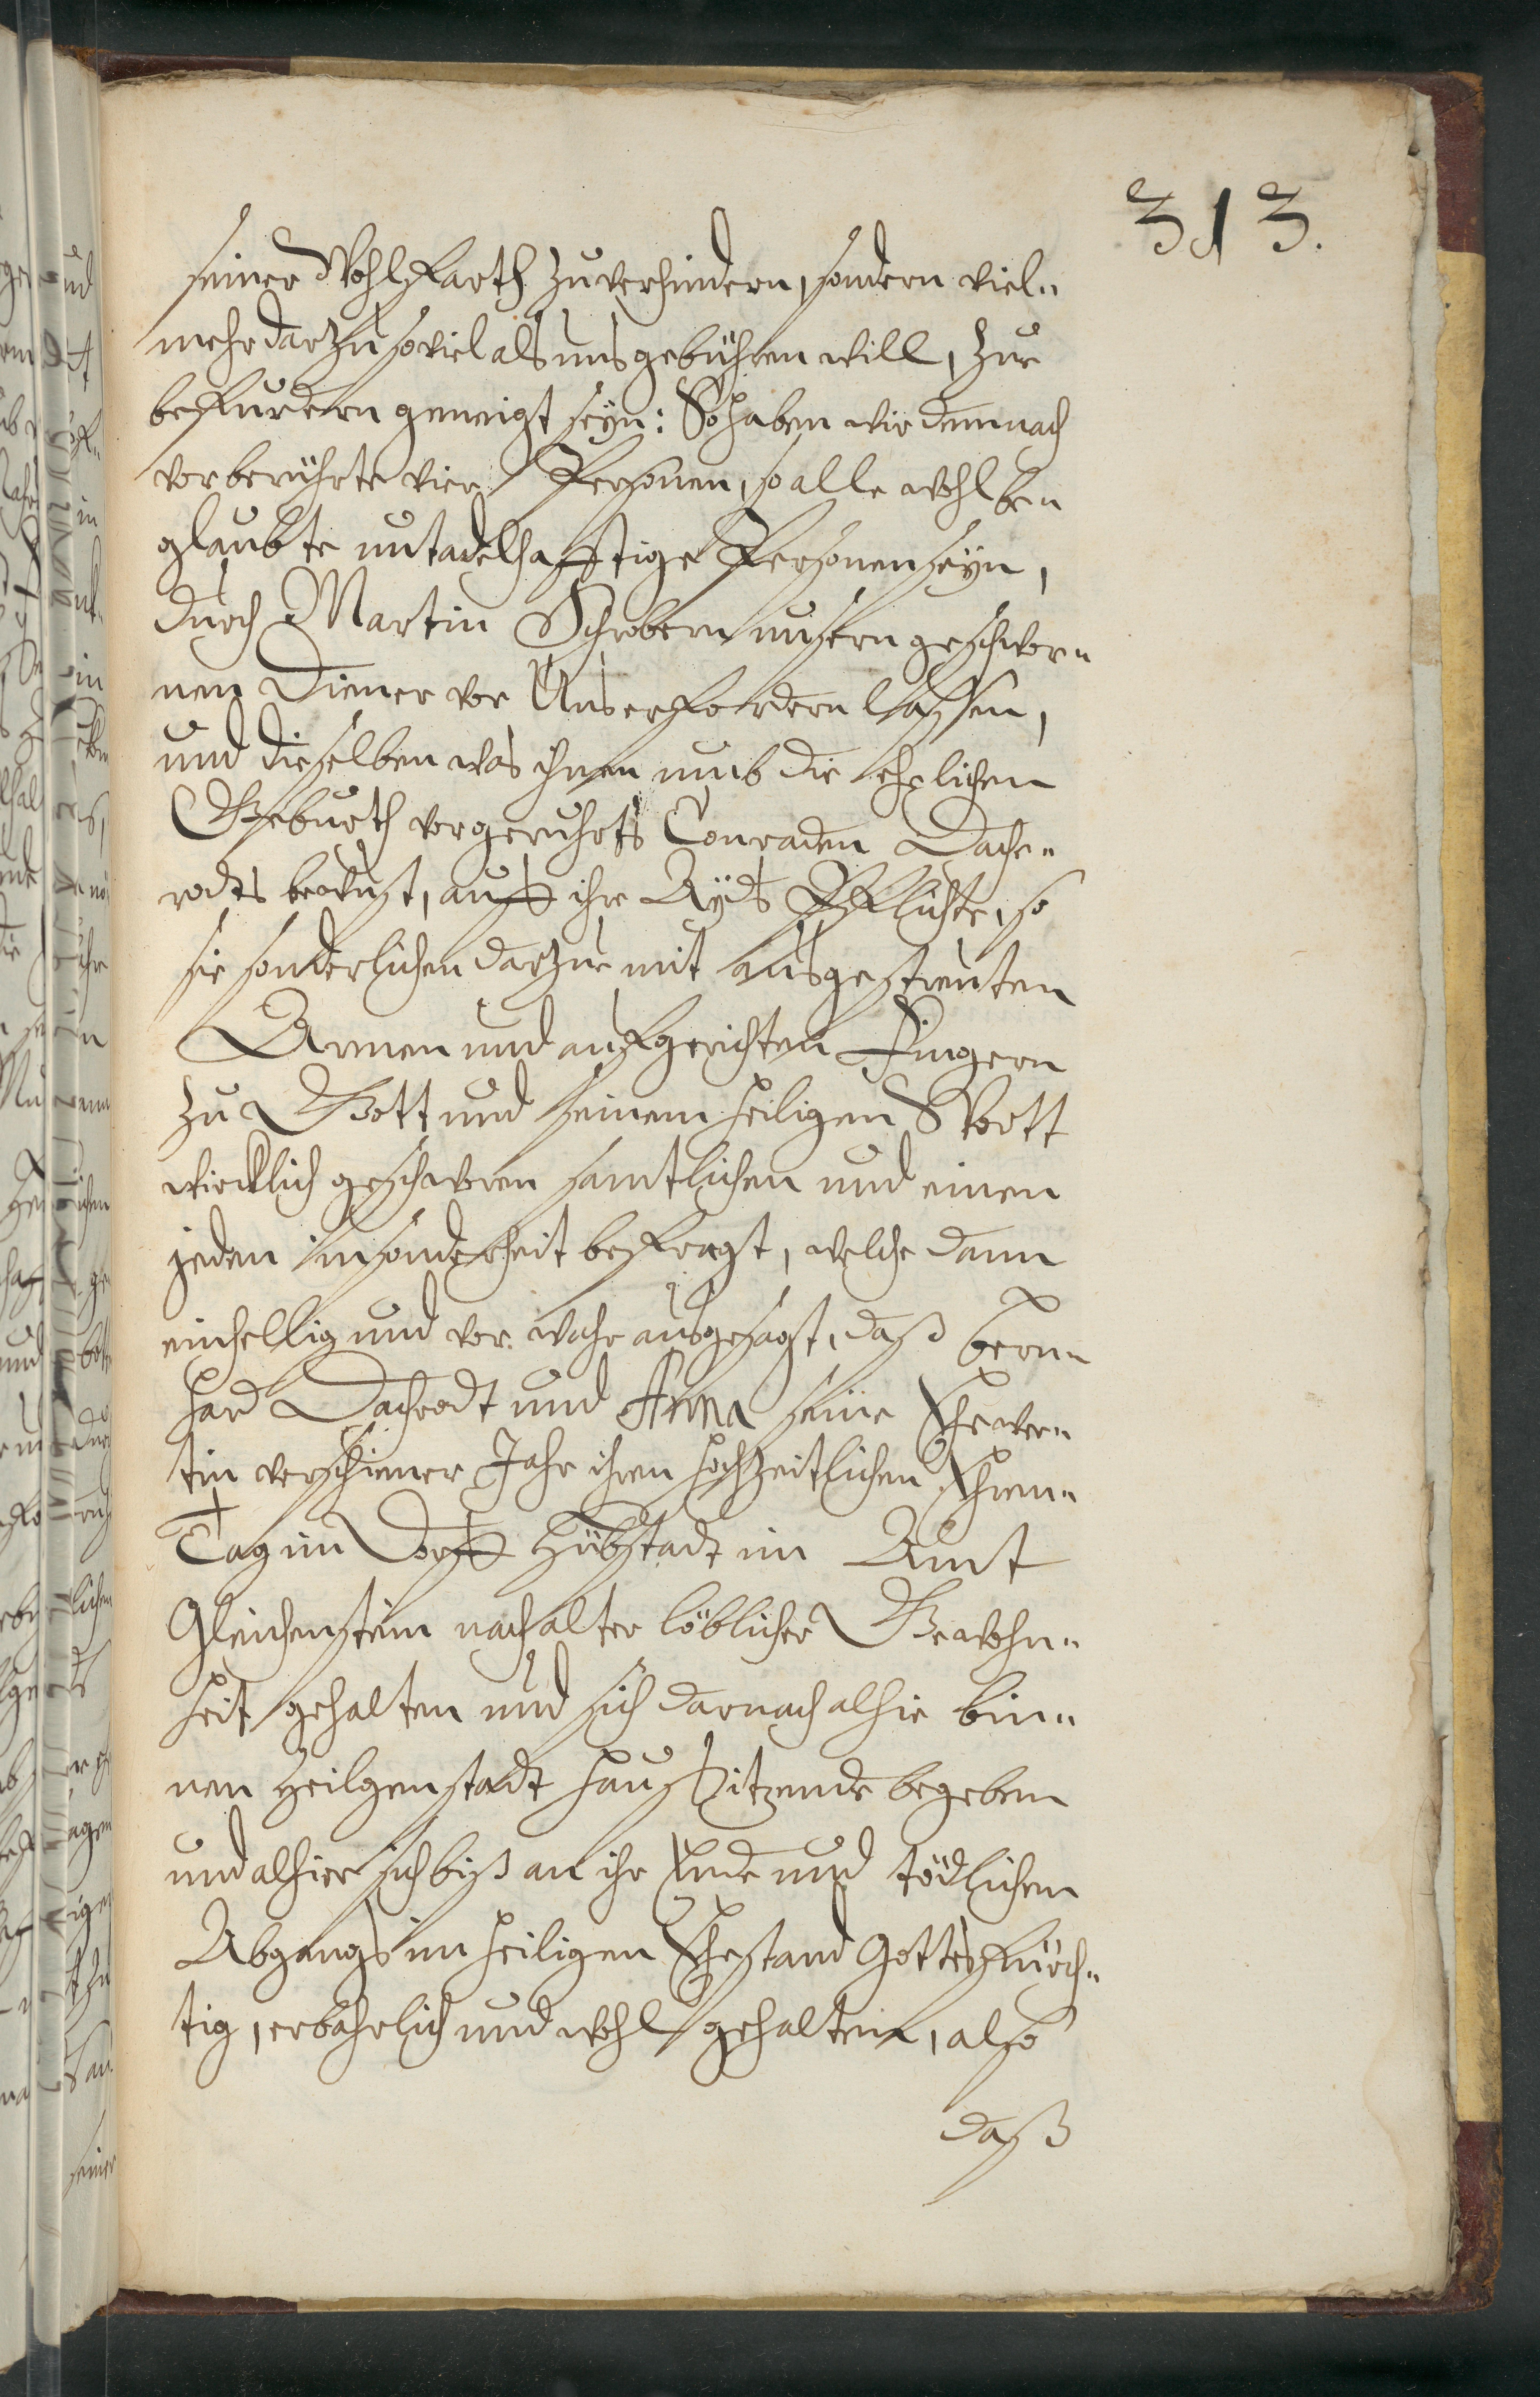 313.
seiner Wohlfarth zuverhindern, sondern viel„
mehr darzu soviel als uns gebühren will, zue
befurdern geneigt seyn: So haben wir demnach
vorberührte vier Personen, so alle wohl be„
glaubte untadelhafftige Personen seyn,
durch Martin Schrobern unsern geschwor„
nen Diener vor Uns erfordern lassen,
und dieselben was ihnen umb die ehelichen
Geburth vorgeruhrts Conraden Dache„
rodts bewust, auff ihre Ayds Pflichte, so
sie sonderlichen darzue mit ausgestreuten
Armen und aufgerichten Fingern
zu Gott und seinem heiligen Wortt
wircklich geschworen samtlichen und einen
jeden insonderheit befragt, welche dann
einhellig und vor wahr ausgesagt, daß Bern„
hard Dachrodt und Anna seine Ehewer„
tin verschiener Jahr ihren hochzeitlichen Ehren„
Tag im Dorff Hübstadt im Amt
Gleichenstein nach alter löblicher Gewohn„
heit gehalten und sich darnach alhie bin„
nen Heilgenstadt haussitzende begeben
und alhier sich biß an ihr Ende und tödlichen
Abgangs im heiligen Ehestand Gottesfürch„
tig, erbahrlich und wohl gehalten, also
daß